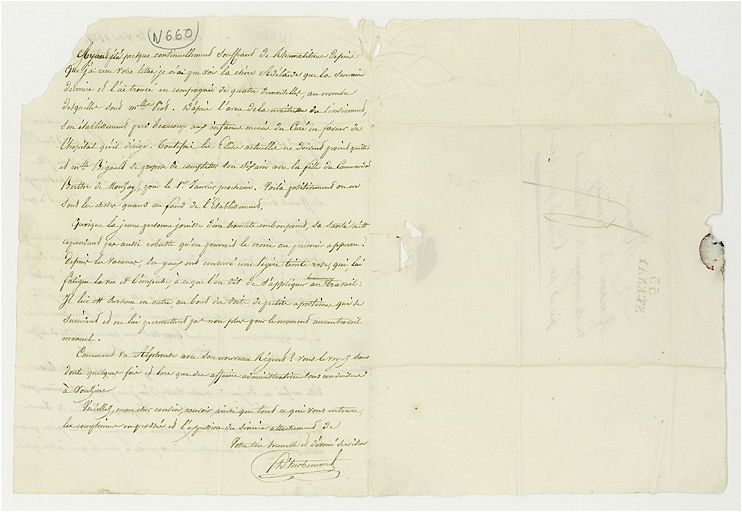 N660
Ayant été presque continuellement souffrant de Rhumatisme depuis
que j'ai reçu votre lettre, je n'ai pu voir la chère Adélaïde que la semaine
dernière et l'ai trouvée en compagnie de quatre demoiselles, au nombre
desquelles sont Melle Pierk. D'après l'aveu de la maîtresse de pensionnat,
son établissement perd beaucoup aux menées du Curé en faveur de
l'hopital qu'il dirige. Toutefois les Elèves actuelles ne doivent point quitter
et Melle Bigault se propose de completter son dizain avec la fille du Commandant
Berthe de Mouzay, pour le 1er Janvier prochain. Voilà positivement où en
sont les choses quant au fond de l'Etablissement.
Quoique la jeune personne jouisse d'un honnête embonpoint, sa santé n'est
cependant pas aussi robuste qu'on pourrait le croire au premier apperçu :
depuis les vacances, ses yeux ont conservé une légère teinte rose, qui lui
fatigue la vue et l'empêche à ce que l'on dit de s'appliquer au travail :
Il lui est survenu en outre au bout des doits de petits apostèmes qui se
succèdent et ne lui permettent pas non plus pour le moment aucun travail
manuel.
Comment va Alphonse avec son nouveau Régent ? vous le voyez sans
doute quelque fois et lors que des affaires administratives vous conduisent
à Vouziers.
Veuillez, mon cher cousin, recevoir, ainsi que tout ce qui vous entoure,
les complimens empressés et l'expression du sincère attachement de
Votre très humble et dévoué serviteur